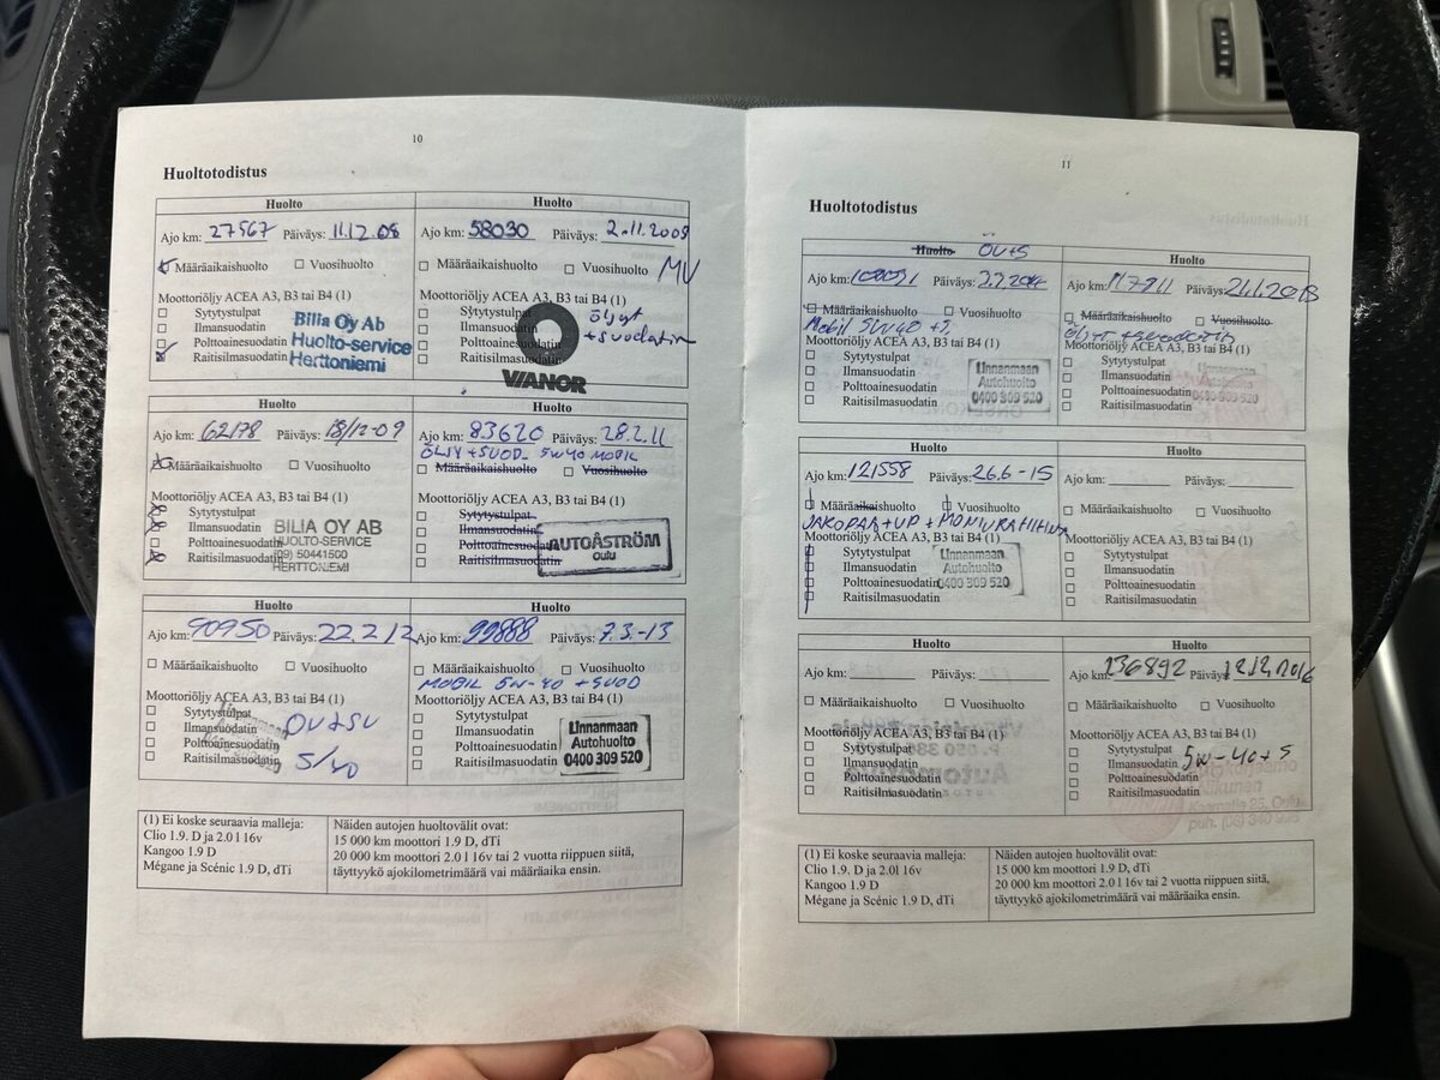 10
Huoltotodistus
Huolto
Ajo km: 27567 Päiväys: 11.12.08
Määräaikaishuolto Vuosihuolto
Moottoriöljy ACEA A3, B3 tai B4 (1)
Sytytystulpat
Ilmansuodatin
Polttoainesuodatin
Raitisilmasuodatin
Bilia Oy Ab
Huolto-service
Herttoniemi
Huolto
Ajo km: 58030 Päiväys: 2.11.2009
Määräaikaishuolto Vuosihuolto MV
Moottoriöljy ACEA A3, B3 tai B4 (1)
Sytytystulpat
Ilmansuodatin
Polttoainesuodatin
Raitisilmasuodatin
öljyt
+suodatin
VIANOR
Huolto
Ajo km: 62178 Päiväys: 18/12-09
Määräaikaishuolto Vuosihuolto
Moottoriöljy ACEA A3, B3 tai B4 (1)
Sytytystulpat
Ilmansuodatin
Polttoainesuodatin
Raitisilmasuodatin
BILIA OY AB
HUOLTO-SERVICE
(09) 50441500
HERTTONIEMI
Huolto
Ajo km: 83620 Päiväys: 28.2.11
ÖLJY +SUOD. 5W40 MOBIL
Määräaikaishuolto Vuosihuolto
Moottoriöljy ACEA A3, B3 tai B4 (1)
Sytytystulpat
Ilmansuodatin
Polttoainesuodatin
Raitisilmasuodatin
AUTOÅSTRÖM
OULU
Huolto
Ajo km: 90950 Päiväys: 22.2/12
Määräaikaishuolto Vuosihuolto
Moottoriöljy ACEA A3, B3 tai B4 (1)
Sytytystulpat
Ilmansuodatin
Polttoainesuodatin
Raitisilmasuodatin
ÖV+SU
5/40
Huolto
Ajo km: 99888 Päiväys: 7.3.-13
Määräaikaishuolto Vuosihuolto
MOBIL 5W-40 +SUOD
Moottoriöljy ACEA A3, B3 tai B4 (1)
Sytytystulpat
Ilmansuodatin
Polttoainesuodatin
Raitisilmasuodatin
Linnanmaan
Autohuolto
0400 309 520
(1) Ei koske seuraavia malleja:
Clio 1.9. D ja 2.0 l 16v
Kangoo 1.9 D
Mégane ja Scénic 1.9 D, dTi
Näiden autojen huoltovälit ovat:
15 000 km moottori 1.9 D, dTi
20 000 km moottori 2.0 l 16v tai 2 vuotta riippuen siitä,
täyttyykö ajokilometrimäärä vai määräaika ensin.
11
Huoltotodistus
Huolto ÖV+S
Ajo km: Päiväys:
Määräaikaishuolto Vuosihuolto
Mobil 5W40 +S
Moottoriöljy ACEA A3, B3 tai B4 (1)
Sytytystulpat
Ilmansuodatin
Polttoainesuodatin
Raitisilmasuodatin
Linnanmaan
Autohuolto
0400 309 520
Huolto
Ajo km: Päiväys:
Määräaikaishuolto Vuosihuolto
Öljyt +suodatin
Moottoriöljy ACEA A3, B3 tai B4 (1)
Sytytystulpat
Ilmansuodatin
Polttoainesuodatin
Raitisilmasuodatin
Linnanmaan
Autohuolto
0400 309 520
Huolto
Ajo km: 121558 Päiväys: 26.6-15
Määräaikaishuolto Vuosihuolto
JAKOPÄÄ+VP+MONIURAHIHNA
Moottoriöljy ACEA A3, B3 tai B4 (1)
Sytytystulpat
Ilmansuodatin
Polttoainesuodatin
Raitisilmasuodatin
Linnanmaan
Autohuolto
0400 309 520
Huolto
Ajo km: Päiväys:
Määräaikaishuolto Vuosihuolto
Moottoriöljy ACEA A3, B3 tai B4 (1)
Sytytystulpat
Ilmansuodatin
Polttoainesuodatin
Raitisilmasuodatin
Huolto
Ajo km: Päiväys:
Määräaikaishuolto Vuosihuolto
Moottoriöljy ACEA A3, B3 tai B4 (1)
Sytytystulpat
Ilmansuodatin
Polttoainesuodatin
Raitisilmasuodatin
Huolto
Ajo km: 136892 Päiväys: 12.12.2016
Määräaikaishuolto Vuosihuolto
Moottoriöljy ACEA A3, B3 tai B4 (1)
Sytytystulpat
Ilmansuodatin
Polttoainesuodatin
Raitisilmasuodatin
5w-40+S
(1) Ei koske seuraavia malleja:
Clio 1.9. D ja 2.0l 16v
Kangoo 1.9 D
Mégane ja Scénic 1.9 D, dTi
Näiden autojen huoltovälit ovat:
15 000 km moottori 1.9 D, dTi
20 000 km moottori 2.0 l 16v tai 2 vuotta riippuen siitä,
täyttyykö ajokilometrimäärä vai määräaika ensin.